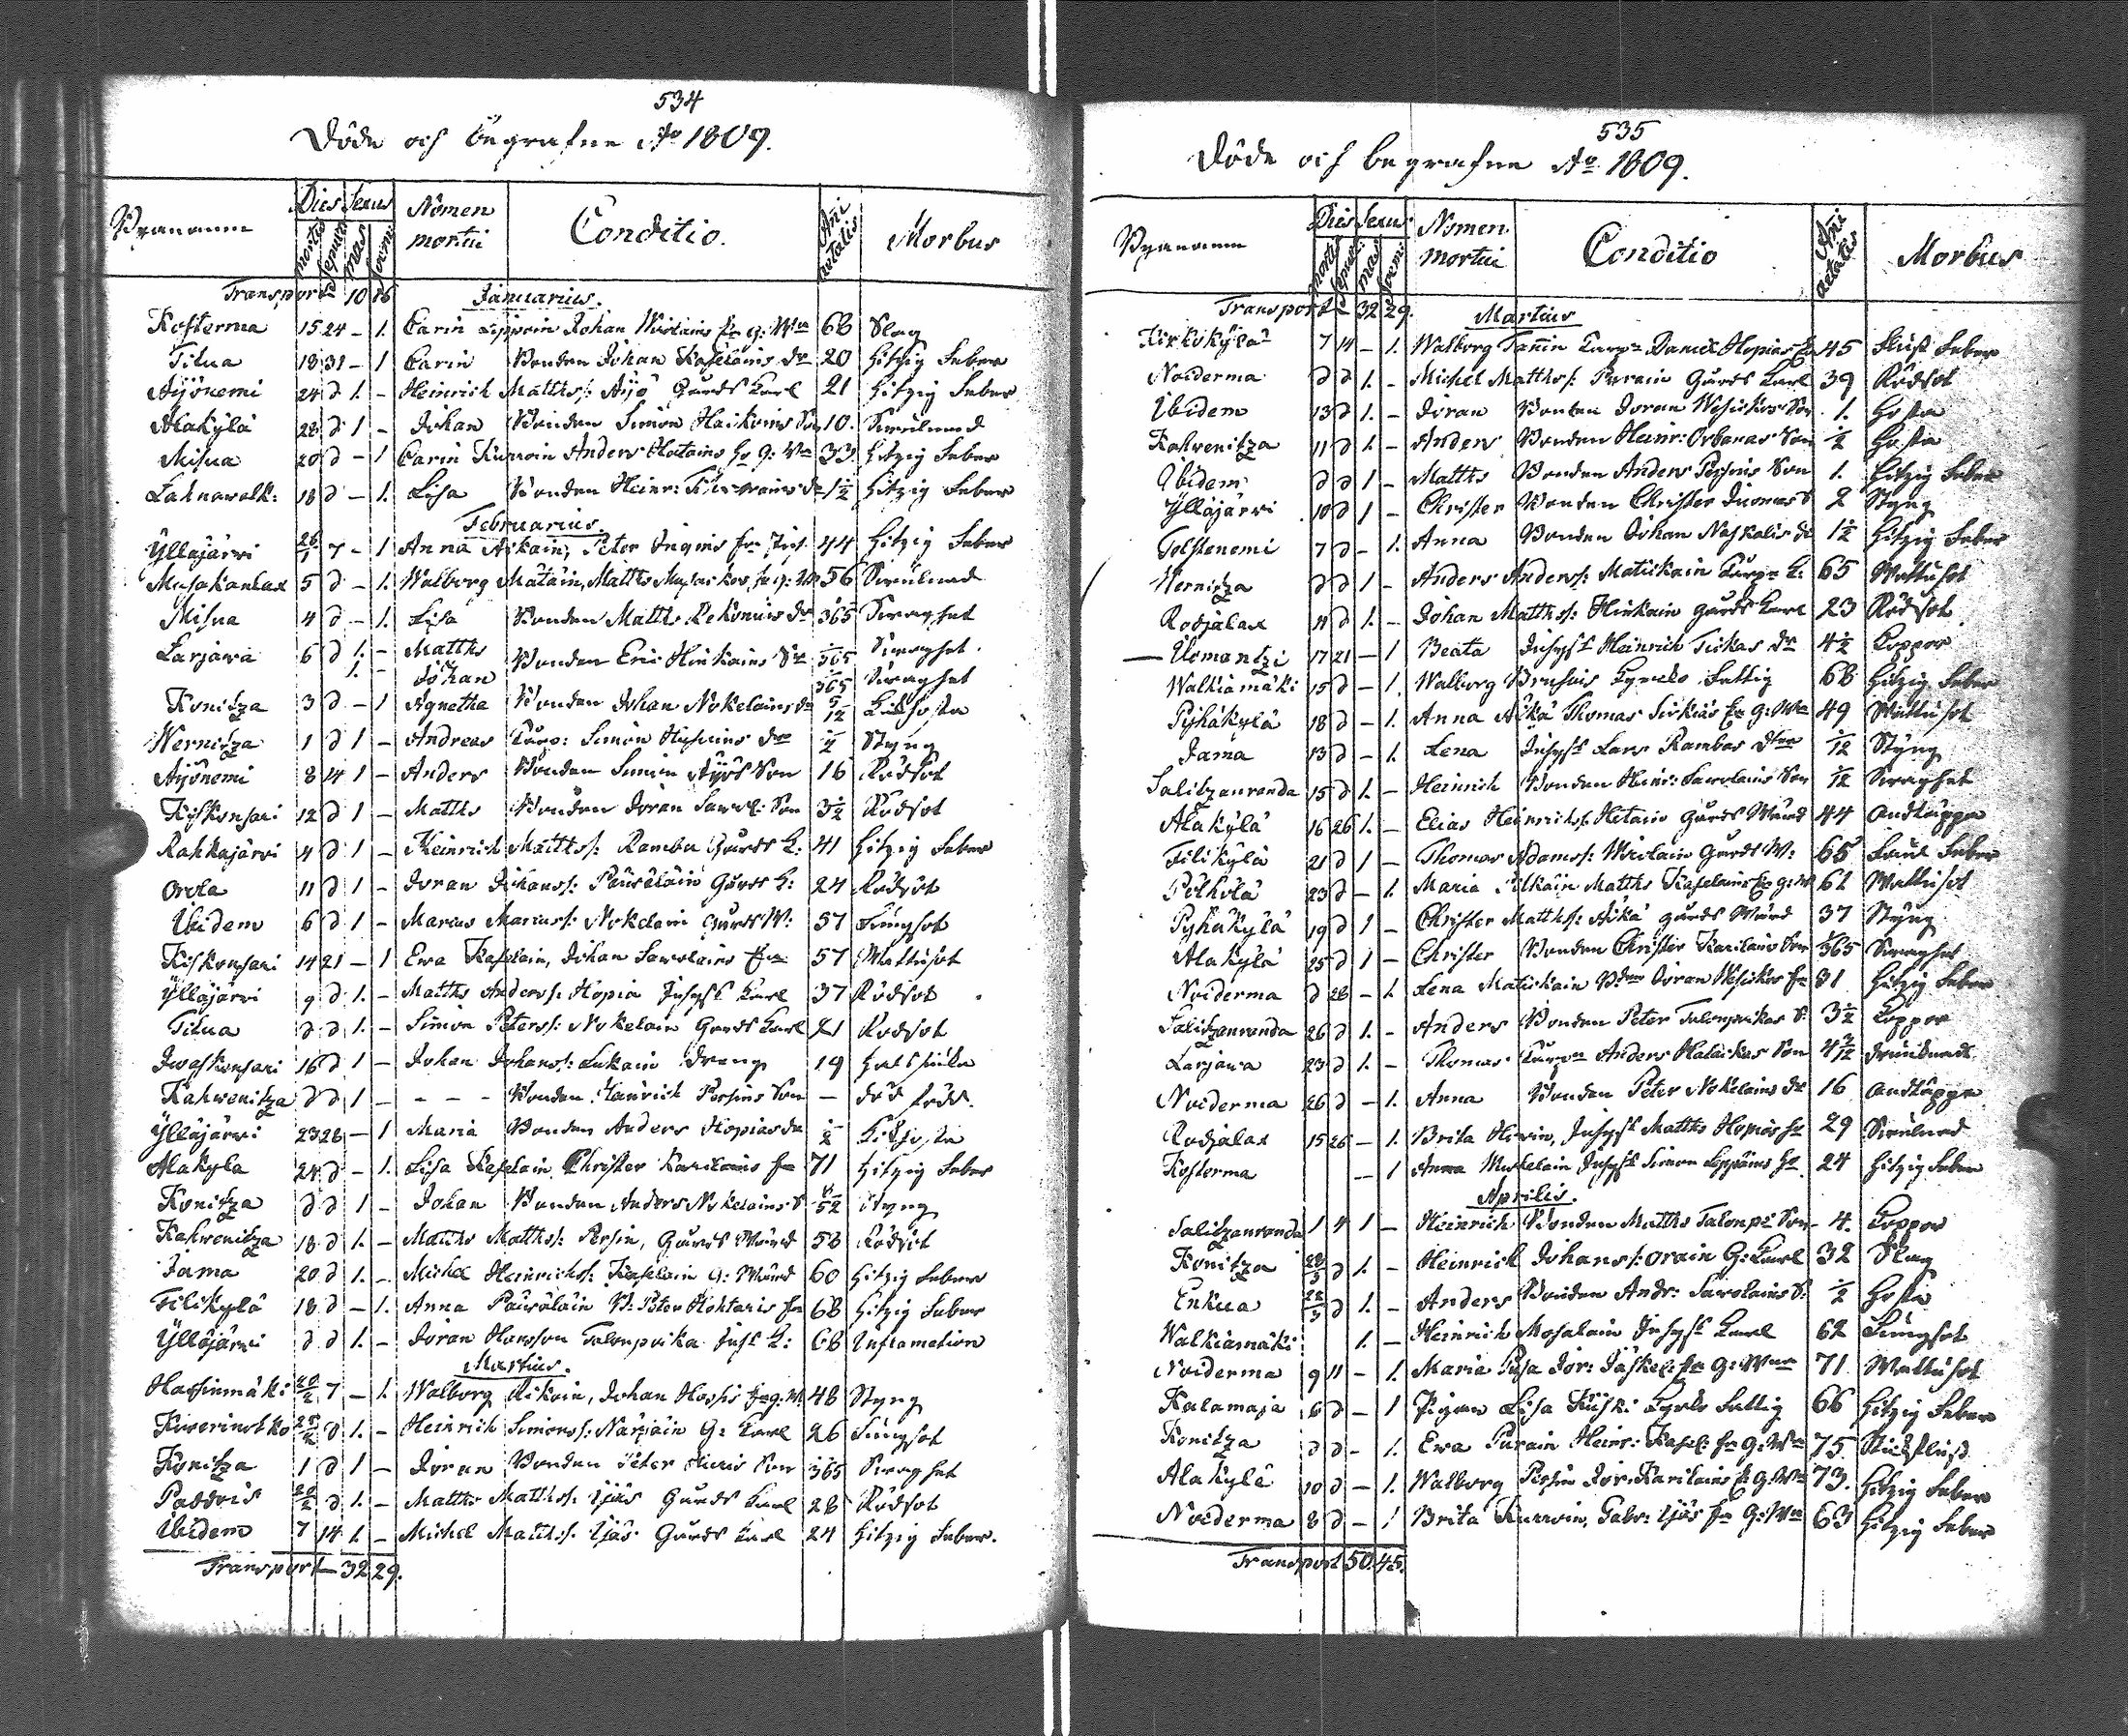 534
Döde och begrafne Ao 1809.
Byanamn Dies Sexus Nomen mortui Conditio. Ani aetatis Morbus
mortis sepult mas foem
Transport 10 16 Januarius.
Kosterma 15 24 - 1. Carin Lippoin Johan Wirolains Ea g: Wa 68 Slag
Titua 18 31 - 1 Carin Bonden Johan Kaselains dr 20 Hitzig Feber
Äijönemi 24 d 1. - Heinrich Matths: Äijö Gårds Karl 21 Hitzig Feber
Alakylä 28 d 1 - Johan Bonden Simon Haikoins Son 10.
Misua 20 d - 1 Carin Kurwin Anders Hotains Ea g: Wa 33 Hitzig Feber
Lahnawalk: 18 d - 1. Lisa Bonden Heinr: dr 1½ Hitzig Feber
Februarius.
Ylläjärwi 26/1 7 - 1 Anna Asikain, Peter Ingins hu 44 Hitzig Feber
Musakanlax 5 d - 1. Walborg Mätäin, Matths g: W 56
Misua 4 d - 1. Lisa Bonden Matths Rekonens dr 1/365 Swaghet
Larjawa 6 d 1. - Matths Bonden Eric Hirkains Sr 1/365 Swaghet.
1. - Johan 1/365 Swaghet
Konitza 3 d - 1 Agnetha Bonden Johan Nokelains dr 5/12 Kikhosta
Wernitza 1 d 1 - Andreas Torp: Simon ½ Styng
Äijönemi 8 14 1 - Anders Bonden Simon Äijös Son 16 Rödsot
Kiskonsari 12 d 1 - Matths Bonden Jöran Sawol: Son 3½ Rödsot
Rahkajärwi 4 d 1 - Heinrich Matths: Rambu Gårds K: 41 Hitzig Feber
Orola 11 d 1 - Jöran Johans: Päiwäläin Gårds K: 24 Rödsot
Ibidem 6 d 1 - Marcus Marcuss: Nokelain Gårds W: 57 Lungsot
Kiskonsari 14 21 - 1 Ewa Kaselain, Johan Sawolains hu 57 Wattusot
Ylläjärwi 9 d 1. - Matths Anderss: Hopia Inhyss Karl 37 Rödsot
Titua d d 1. - Simon Peterss: Nokelain Gårds Karl 21 Rödsot
Iwaskonsari 16 d 1 - Johan Johans: Lukain Dreng 19 Halssjuka
Kahwenitza d d 1 - - - - Bonden Henrich Persins Son - död född.
Ylläjärwi 23 28 - 1 Maria Bonden Anders Hopias dr ½ Kikhosta
Alakyla 24 d - 1. Lisa Kaselain Christer Karilains hu 71 Hitzig Feber
Konitza d d 1 - Johan Bonden Anders Nokelains S /52 Styng
Kahwenitza 18 d 1. - Matths Matths: Persin, Gårds Wärd 58 Rödsot
Jama 20 d 1. - Michel Heinrichs: Kaselain G: Wärd 60 Hitzig Feber
Tilikylä 18 d - 1. Anna Päiwäläin B: Peter Hohtaris hu 68 Hitzig Feber
Ylläjärwi d d 1. - Jöran Hansson Talonpoika Inhs K: 68 Inflamation
Martius.
Hassinmäki 28/2 7 - 1. Walborg Rikoin, Johan Hassis hu g: W 48 Styng
Kiwerinotko 25/2 d 1. - Heinrich Simonss: Närjäin G: Karl 26 Lungsot
Konitza 1 d 1 - Jöran Bonden Peter Son 1/365 Swaghet
Patdois 28/2 d 1. - Matths Matths: Ijäs Gårds Karl 28 Rödsot
Ibidem 7 14 1. - Michel Matths: Ijäs Gårds Karl 24 Hitzig Feber.
Transport - 32 29.
535
Döde och begrafne Ao 1809.
Byanamn Dies Sexus Nomen mortui Conditio Ani aetatis Morbus
mortis sepult mas foem
Transport 32 29. Martius
Kirkokylä 7 14 - 1. Walborg Tanin Torpn Daniel Hopias hu 45 Fluss Feber
Noiderma d d 1. - Michel Matths: Purain Gårds Karl 39 Rödsot
Ibidem 13 d 1. - Jöran Bonden Jöran Wesickos Son 1. Hosta
Kahwenitza 11 d 1. - Anders Bonden Heinr: Orbanas Son ½ Hosta
Ibidem d d 1 - Matths Bonden Anders Persins Son 1. Hitzig Feber
Ylläjärwi 10 d 1 - Christer Bonden Christer S 2 Styng
Tolstenemi 7 d - 1. Anna Bonden Johan Naskalis dr 1½ Hitzig Feber
Wernitza d d 1 - Anders Anderss: Matickain Torpn K: 65 Wattusot
Rodjalax 11 d 1. - Johan Matths: Hirkain gårds Karl 23 Rödsot
Ilomantzi 17 21 - 1 Beata Inhyss Heinrich Tickas dr 4½ Koppor
Walkiamäki 15 d - 1. Walborg Kyrcko Fattig 68 Hitzig Feber
Pyhäkylä 18 d - 1. Anna Äikä Thomas Sirkiäs Ea G: Wa 49 Wattusot
Jama 13 d - 1. Lena Inhyss Lars Rambos dtr /12 Styng
Salitzanranda 15 d 1. - Heinrich Bonden Heinr: Sawolains Son /12 Swaghet
Alakylä 16 26 1. - Elias Heinrichs: Hotain Gårds Wärd 44 Andtäppa
Tilikylä 21 d 1 - Thomas Adamss: Wirolain Gårds W: 65 Feber
Potkola 23 d - 1. Maria Matths Kaselains Ea g: W 61 Wattusot
Pyhäkylä 19 d 1 - Christer Matths: Äikä gårds Wärd 37 Styng
Alakylä 25 d 1 - Christer Bonden Christer Karilains Son 1/365 Swaghet
Noiderma d 28 - 1. Lena Matickain Bdn Jöran Wesickos hu 31 Hitzig Feber
Salitzanranda 26 d 1. - Anders Bonden Peter Talonpoikas S. 3½ Koppor
Larjawa 23 d 1. - Thomas Torpn Anders Halackas Son 4 /12 drunknat
Noiderma 26 d - 1. Anna Bonden Peter Nokelains dr 16 Andtäppa
Rodjalax 15 26 - 1. Brita Hirwin, Inhyss Matths Hopias hu 29
Kosterma - - 1 Anna Muskelain Inhyss Simon Lippoins hu 24 Hitzig Feber
Aprilis.
Salitzanranda 1 4 1 - Heinrich Bonden Matths Talonp: Son - 4. Koppor
Konitza 28/3 d 1. - Heinrich Johans: Orain G: Karl 32 Slag
Enkua 28/3 d 1. - Anders Bonden Andr: Sawolains S. ½ Hosta
Walkiamäki 1. - Heinrich Mosalain Inhyss Karl 62 Lungsot
Noiderma 9 11 - 1. Maria Pesa Jör: Jäskel: Ea G: Wa 71 Wattusot
Kalamaja 6 d - 1 Pigan Lisa Kyrko Fattig 66 Hitzig Feber
Konitza d d - 1. Ewa Purain Heinr: Kasel: Ea G: Wa 75. Stickfluss
Alakylä 10 d - 1. Walborg Persin Jör: Karilains Ea G: Wa 73. Hitzig Feber
Noiderma 8 d - 1 Brita Kurwin, Gabr: Ijäs Ea G: Wa 63 Hitzig Feber
Transport 50. 45.